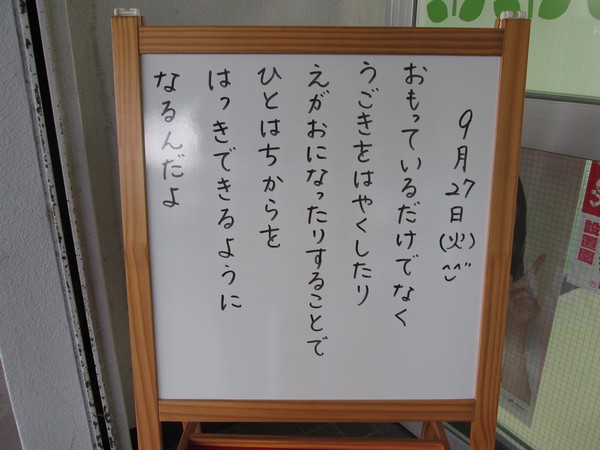 9月27日(火)^^
おもっているだけでなく
うごきをはやくしたり
えがおになったりすることで
ひとはちからを
はっきできるように
なるんだよ
設置園